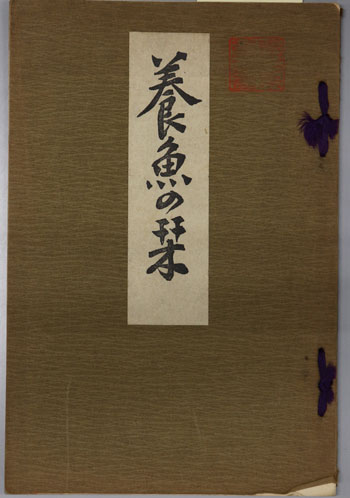 養魚の栞